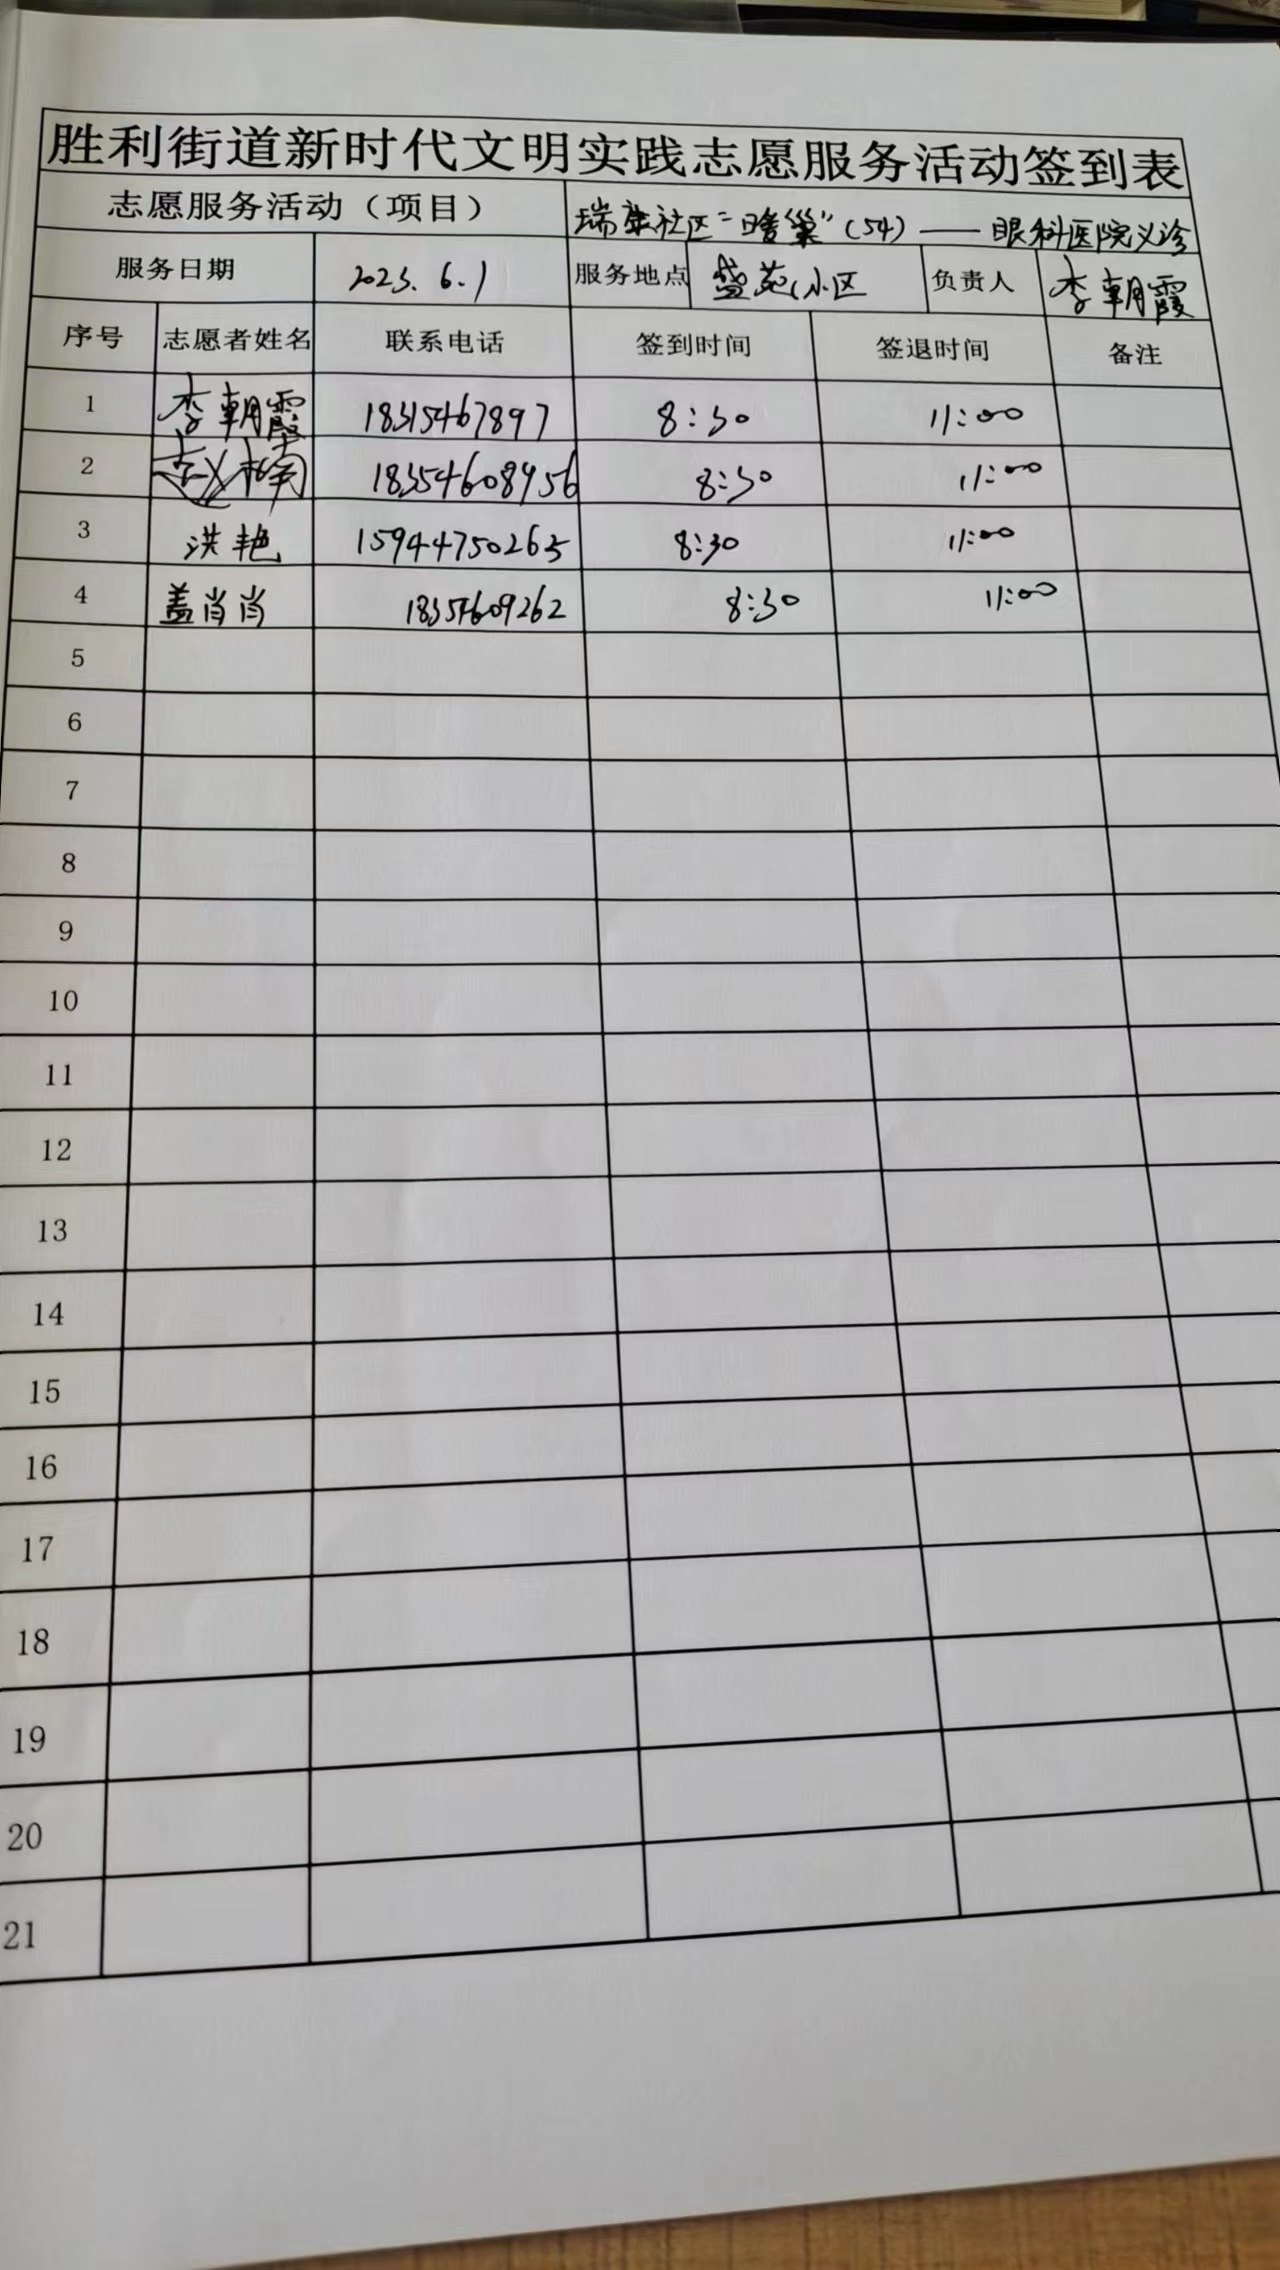 胜利街道新时代文明实践志愿服务活动签到表
志愿服务活动（项目） 瑞康社区“暖巢”（54）——眼科医院义诊
服务日期 2023.6.1 服务地点 盛苑小区 负责人 李朝霞
序号 志愿者姓名 联系电话 签到时间 签退时间 备注
1 李朝霞 18315467897 8:30 11:00
2 18354608456 8:30 11:00
3 洪艳 15944750265 8:30 11:00
4 盖肖肖 18354609262 8:30 11:00
5
6
7
8
9
10
11
12
13
14
15
16
17
18
19
20
21